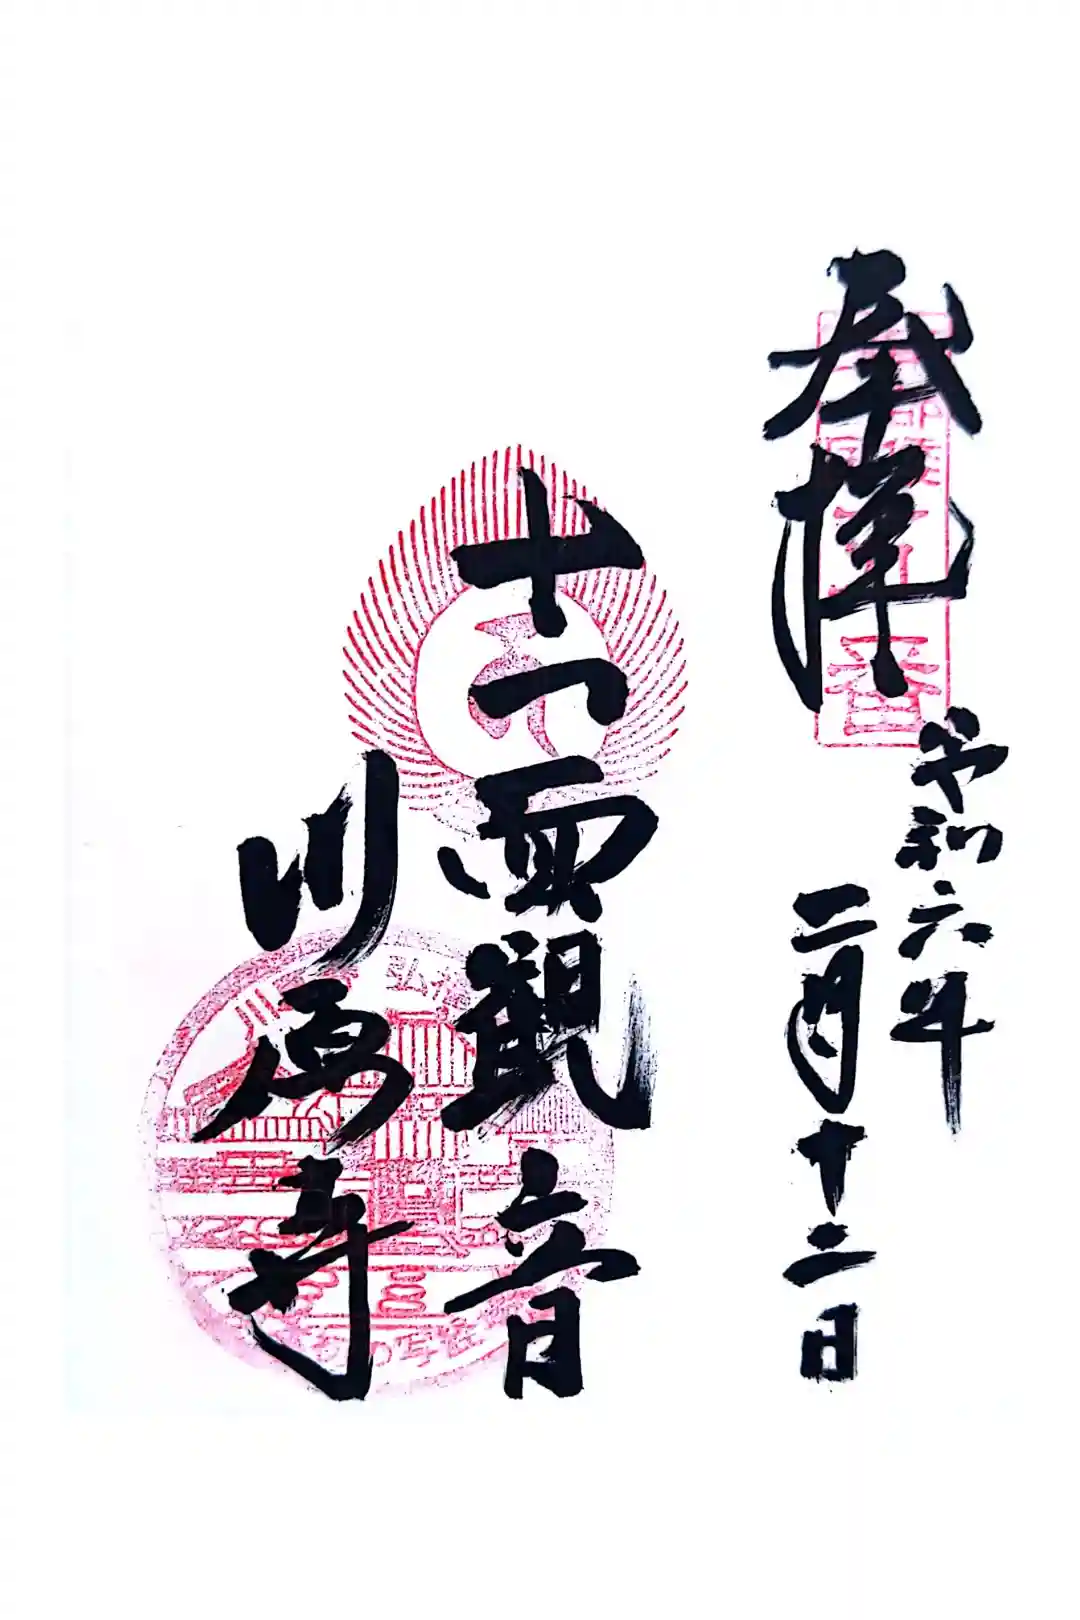 奉拝
令和六年
二月十二日
十一面観音
川原寺
番
弘
写経